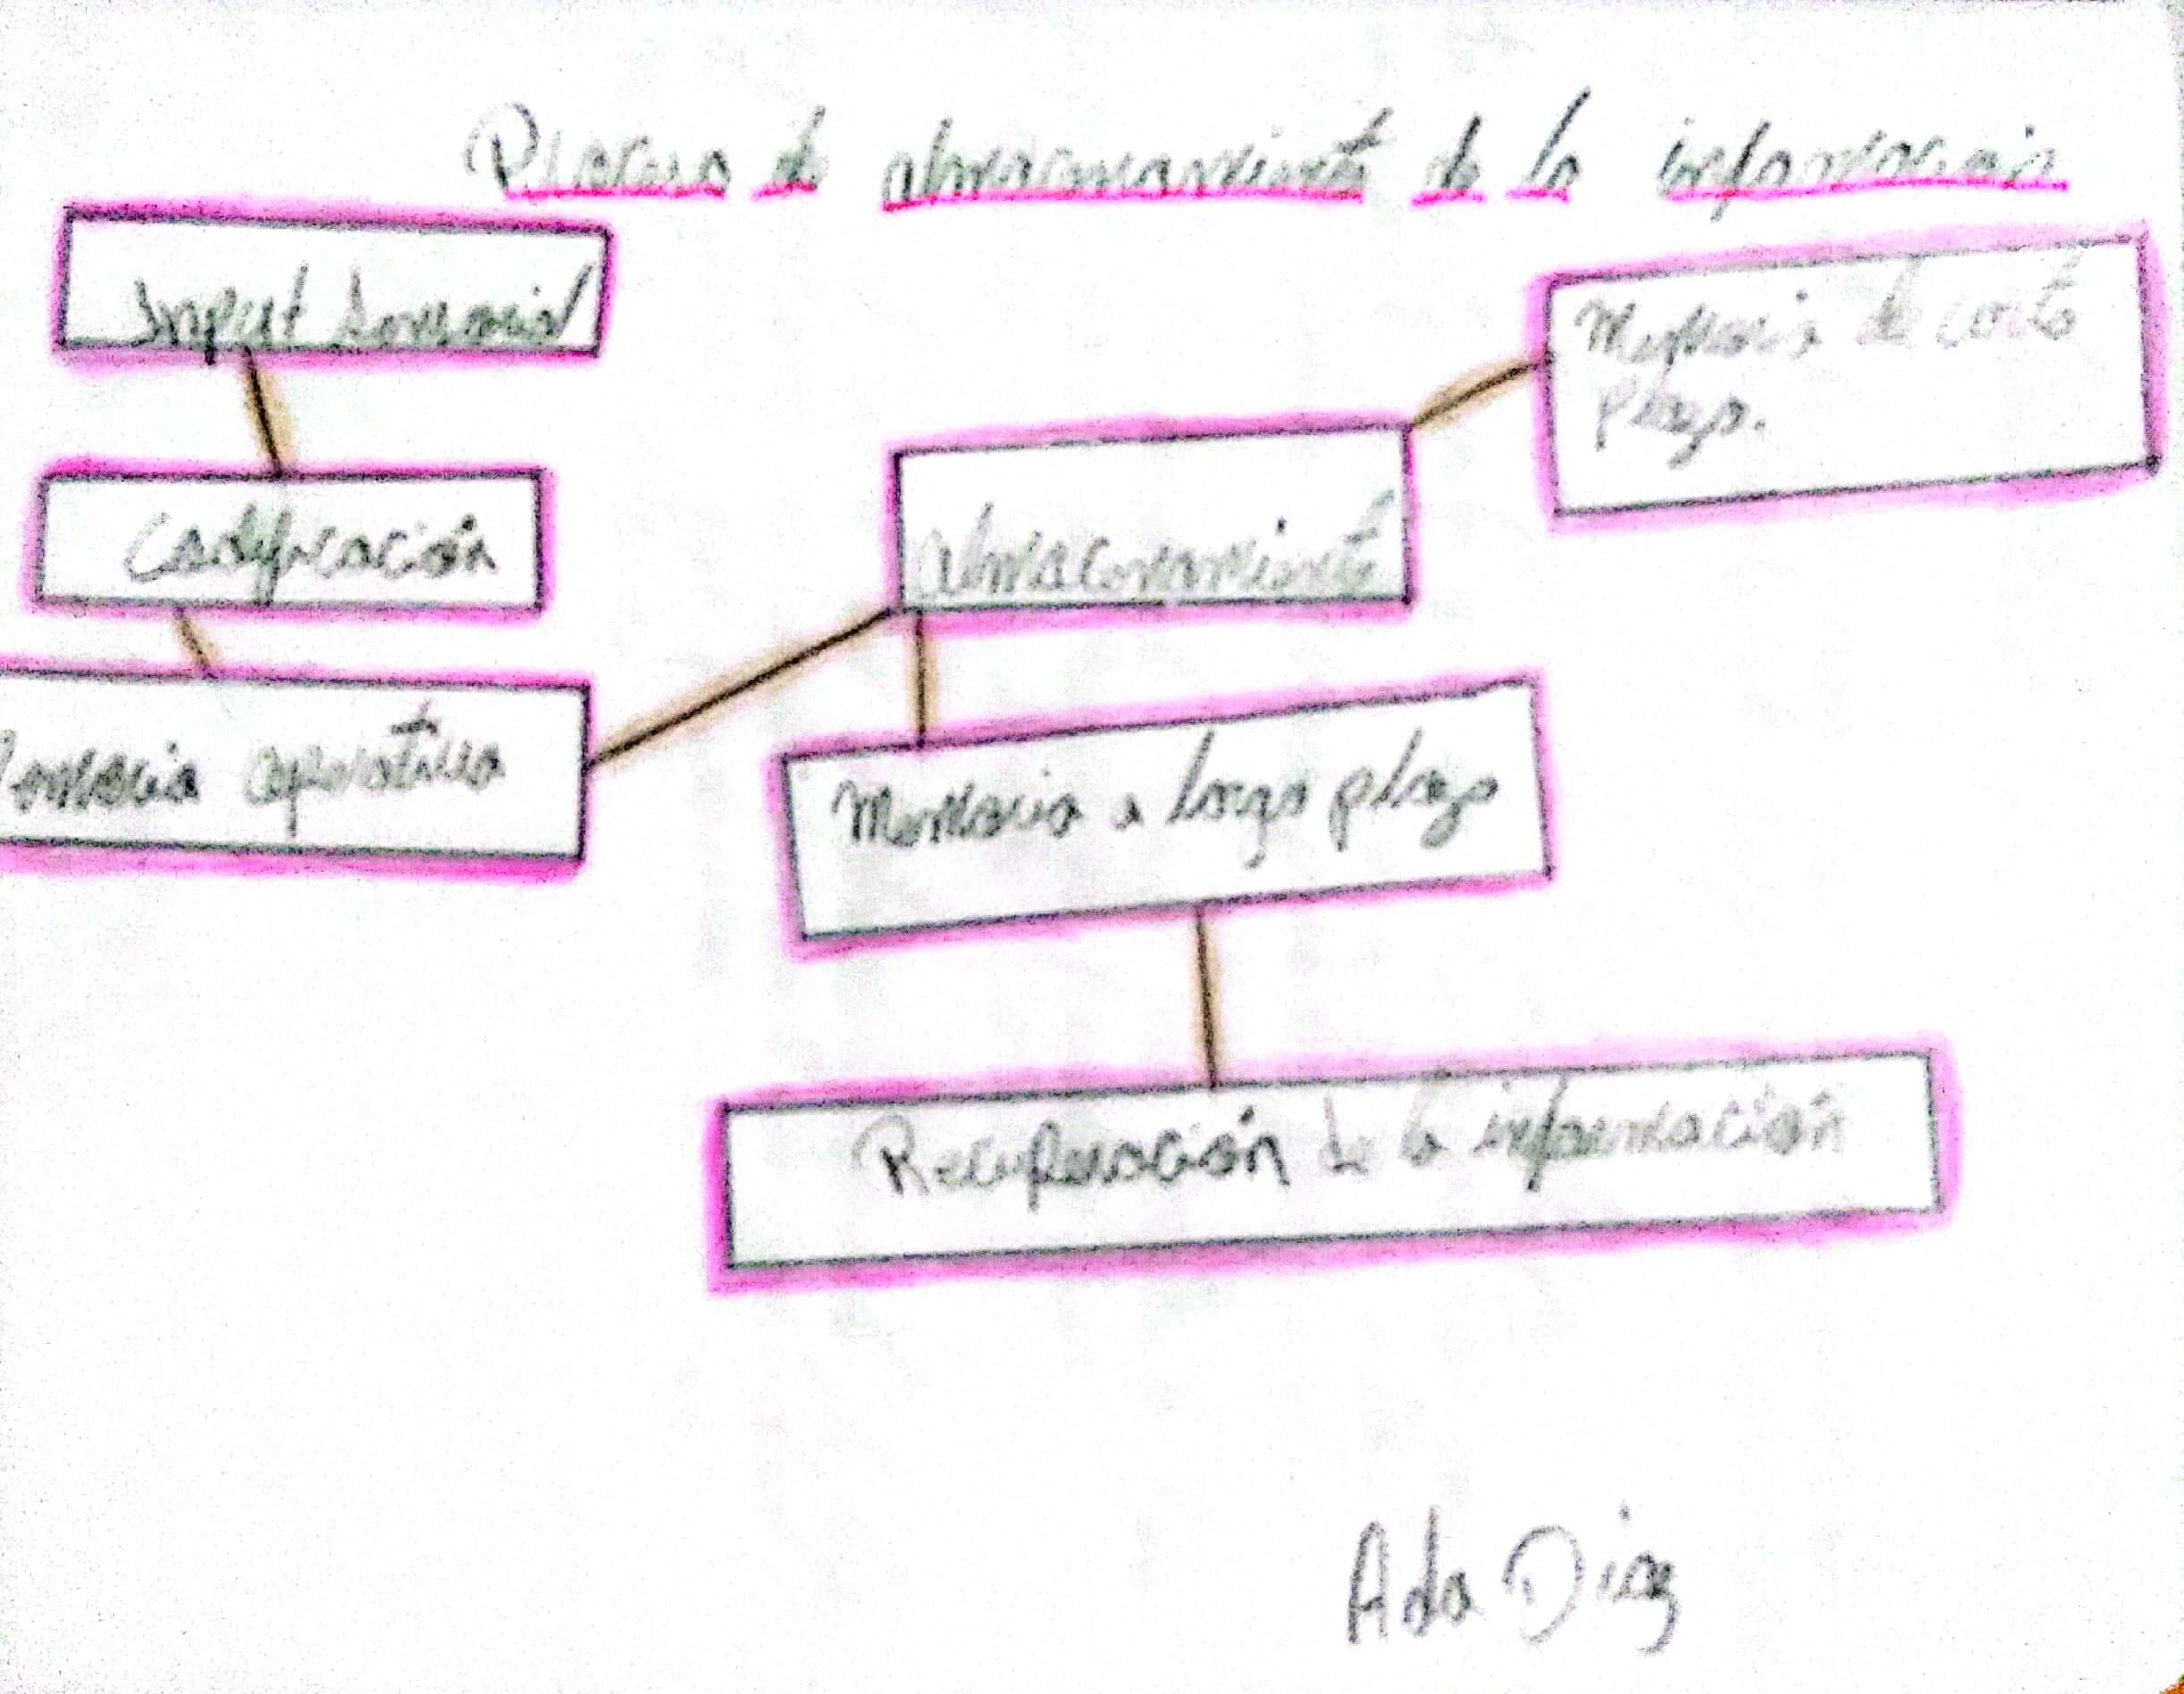 Proceso de almacenamiento de la información
Input Sensorial
Memoria de corto
plazo.
Codificación
almacenamiento
Memoria operativa
Memoria a largo plazo
Recuperación de la información
Ada Diaz